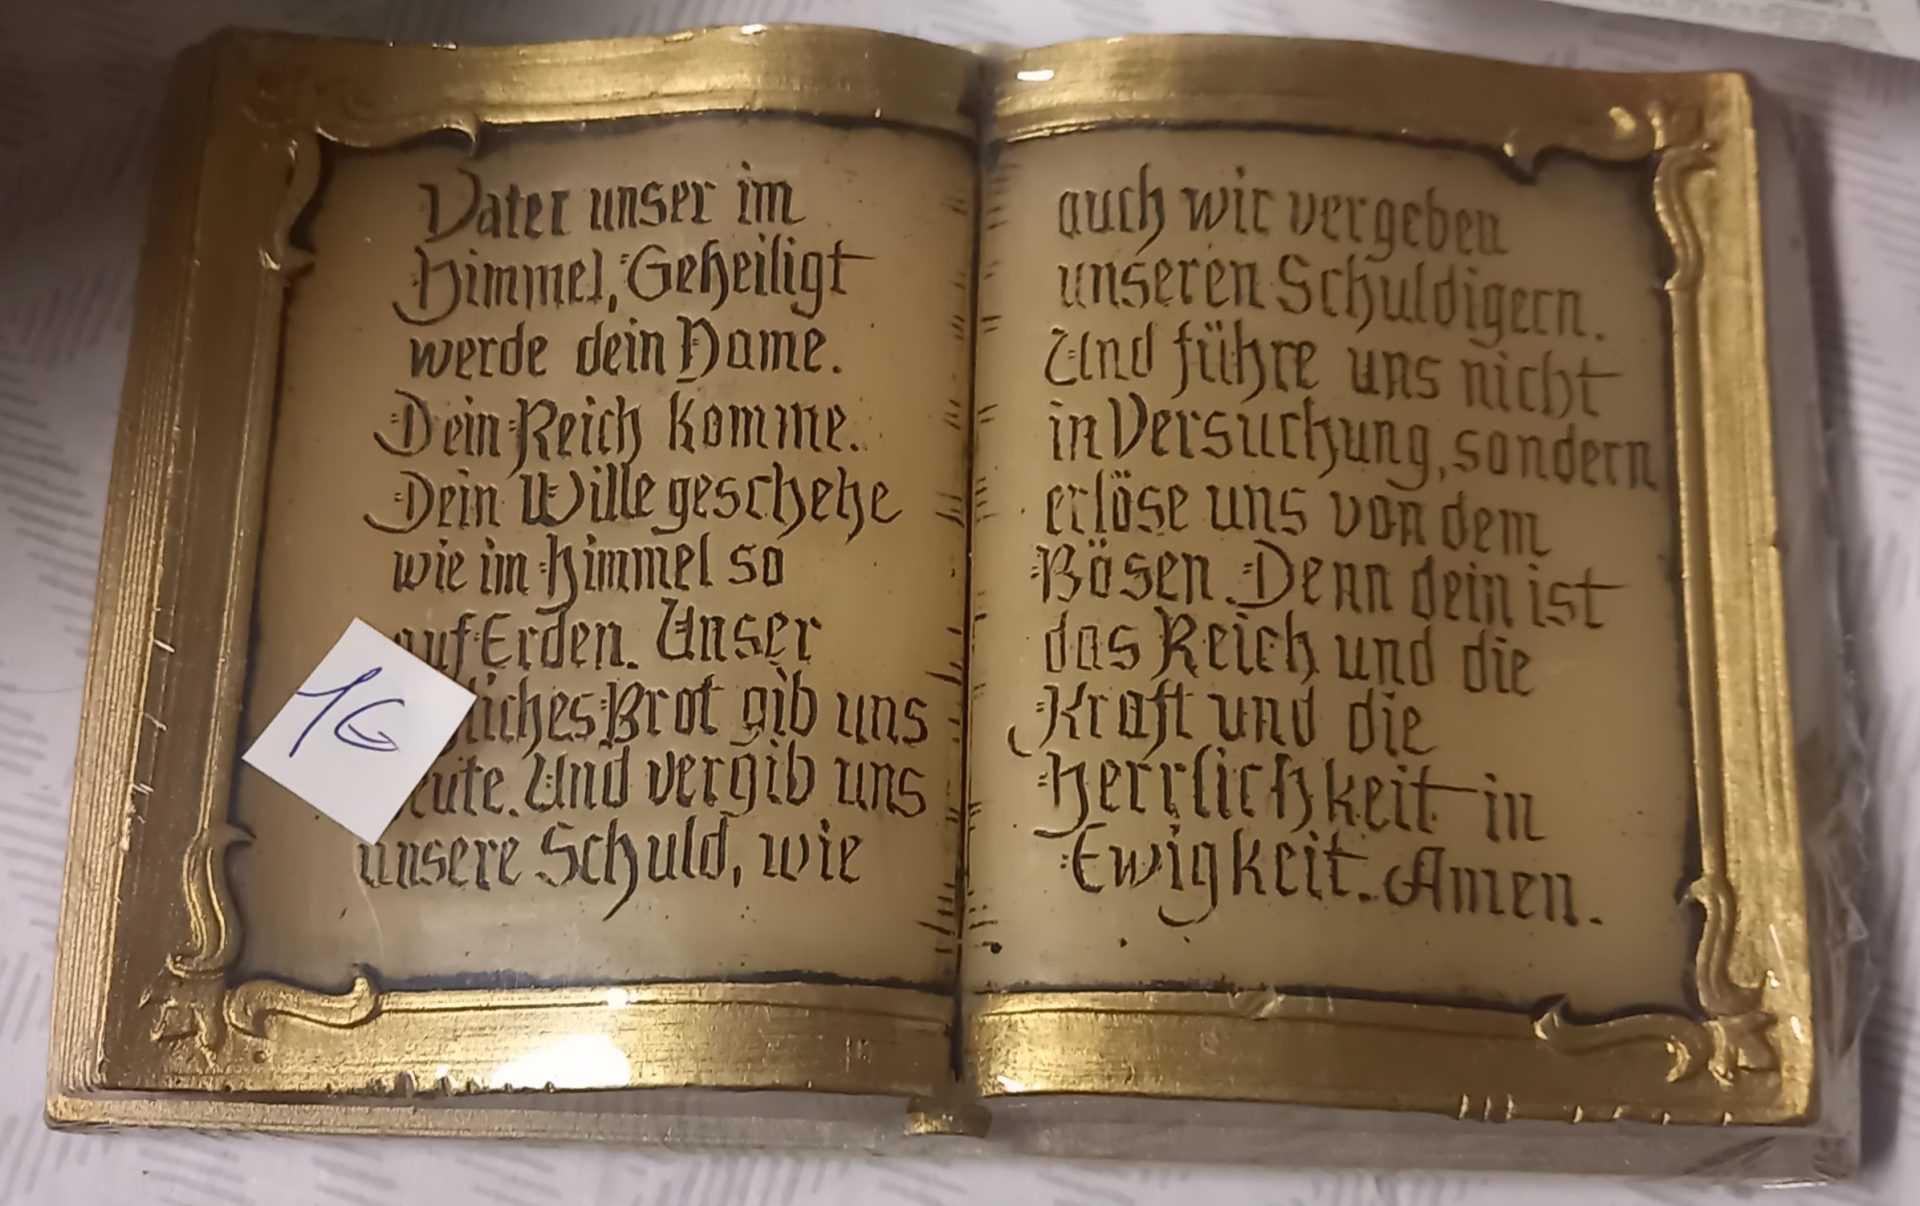 Vater unser im
Himmel, Geheiligt
werde dein Name.
Dein Reich komme.
Dein Wille geschehe
wie im Himmel so
auf Erden. Unser
Brot gib uns
Und vergib uns
unsere Schuld, wie
auch wir vergeben
unseren Schuldigern.
Und führe uns nicht
in Versuchung, sondern
erlöse uns von dem
Bösen. Denn dein ist
das Reich und die
Kraft und die
Herrlichkeit in
Ewigkeit. Amen.